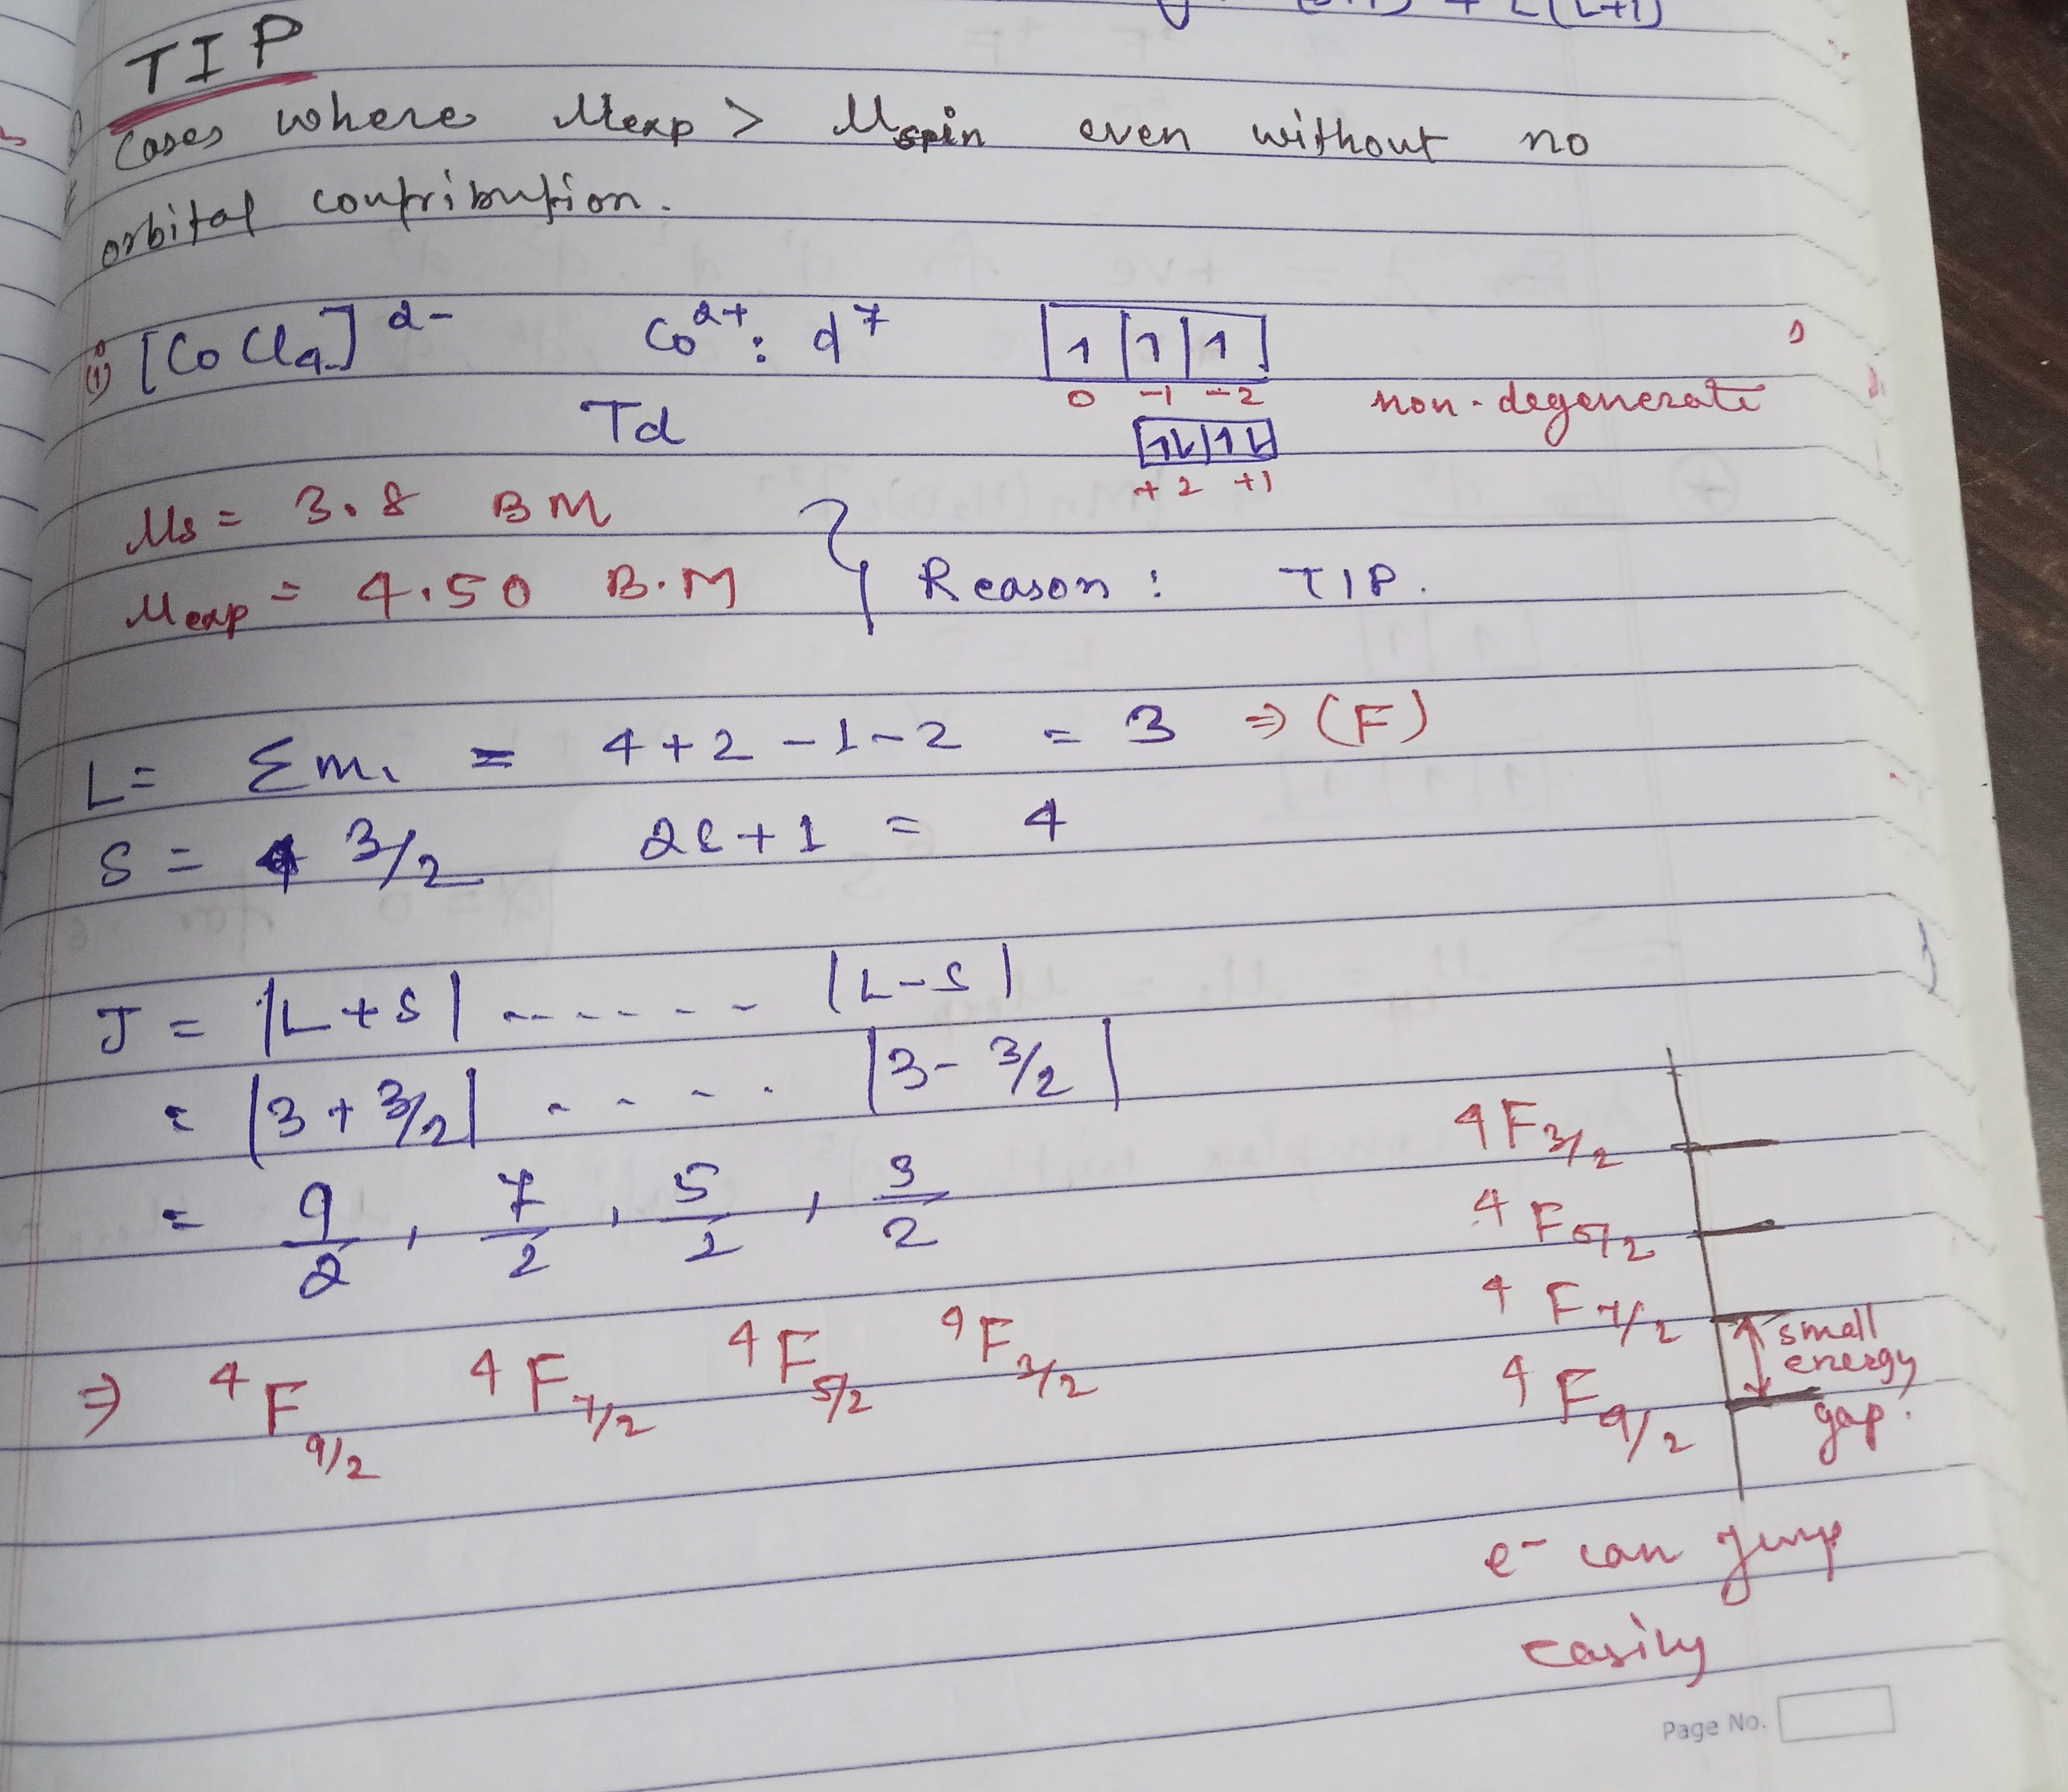 L(L+1)
TIP
Cases where μexp > μspin even without no
orbital contribution.
(i) [CoCl4]2- Co2+: d7 1 1 1
0 -1 -2 non-degenerate
Td 1L 1L
+2 +1
μs = 3.8 BM
μexp = 4.50 B.M } Reason: TIP.
L = Σmi = 4+2-1-2 = 3 ⇒ (F)
S = 3/2 2S+1 = 4
J = |L+S| ------ |L-S|
= |3+3/2| ---- |3-3/2|
= 9/2, 7/2, 5/2, 3/2
⇒ 4F9/2 4F7/2 4F5/2 4F3/2
4F3/2
4F5/2
4F7/2 small
energy
4F9/2 gap.
e- can jump
easily
Page No.